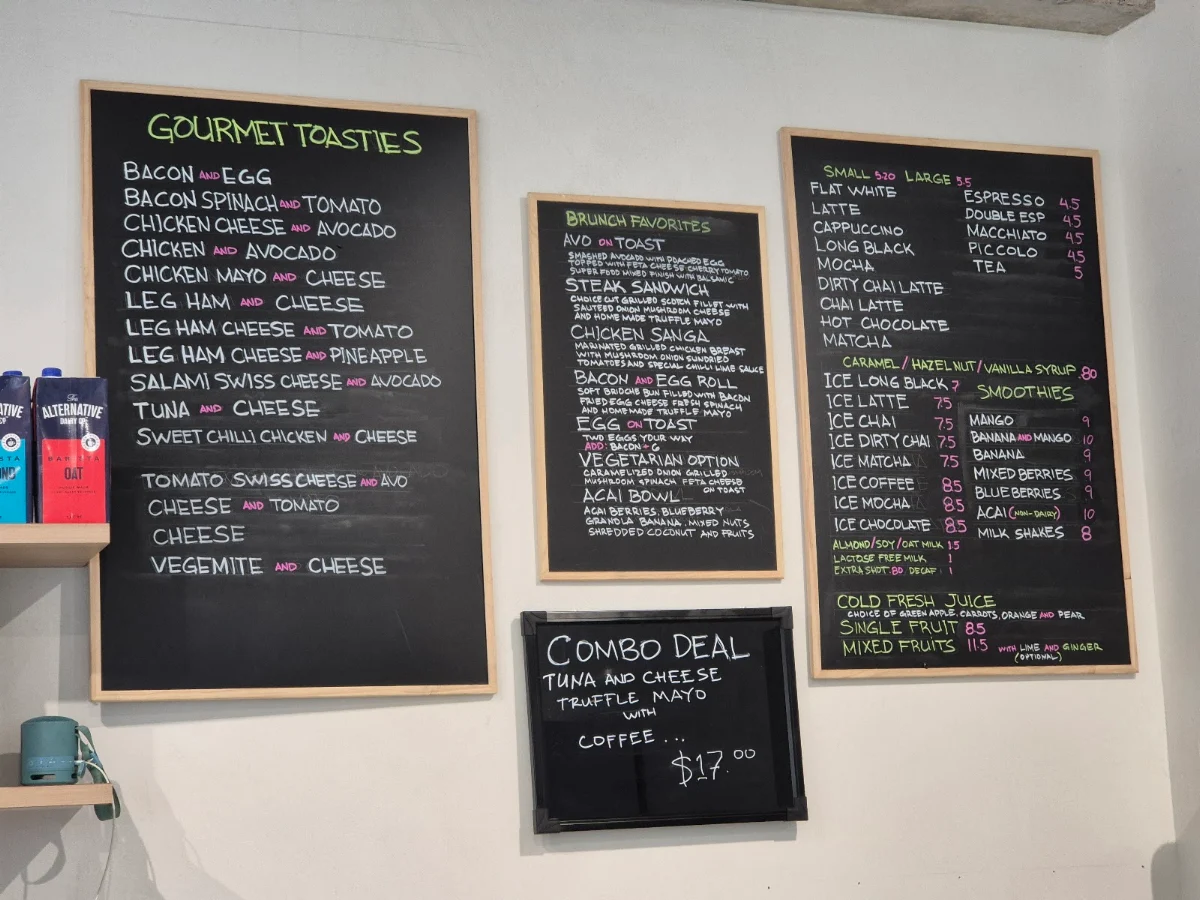 GOURMET TOASTIES
BACON AND EGG
BACON SPINACH AND TOMATO
CHICKEN CHEESE AND AVOCADO
CHICKEN AND AVOCADO
CHICKEN MAYO AND CHEESE
LEG HAM AND CHEESE
LEG HAM CHEESE AND TOMATO
LEG HAM CHEESE AND PINEAPPLE
SALAMI SWISS CHEESE AND AVOCADO
TUNA AND CHEESE
SWEET CHILLI CHICKEN AND CHEESE
TOMATO SWISS CHEESE AND AVO
CHEESE AND TOMATO
CHEESE
VEGEMITE AND CHEESE
BRUNCH FAVORITES
AVO ON TOAST
SMASHED AVOCADO WITH POACHED EGG
TOPPED WITH FETA CHEESE CHERRY TOMATO
SUPER FOOD MIXED FINISH WITH BALSAMIC
STEAK SANDWICH
CHOICE CUT GRILLED SCOTCH FILLET WITH
SAUTEED ONION MUSHROOM CHEESE
AND HOME MADE TRUFFLE MAYO
CHICKEN SANGA
MARINATED GRILLED CHICKEN BREAST
WITH MUSHROOM ONION SUNDRIED
TOMATOES AND SPECIAL CHILLI LIME SAUCE
BACON AND EGG ROLL
SOFT BRIOCHE BUN FILLED WITH BACON
FRIED EGG CHEESE FRESH SPINACH
AND HOMEMADE TRUFFLE MAYO
EGG ON TOAST
TWO EGGS YOUR WAY
ADD: BACON + 6
VEGETARIAN OPTION
CARAMELIZED ONION GRILLED
MUSHROOM SPINACH FETA CHEESE
ON TOAST
ACAI BOWL
ACAI BERRIES, BLUEBERRY
GRANOLA BANANA, MIXED NUTS
SHREDDED COCONUT AND FRUITS
COMBO DEAL
TUNA AND CHEESE
TRUFFLE MAYO
WITH
COFFEE ...
$17.00
SMALL 5.20 LARGE 5.5
FLAT WHITE
LATTE
CAPPUCCINO
LONG BLACK
MOCHA
DIRTY CHAI LATTE
CHAI LATTE
HOT CHOCOLATE
MATCHA
ESPRESSO 4.5
DOUBLE ESP 4.5
MACCHIATO 4.5
PICCOLO 4.5
TEA 5
CARAMEL / HAZELNUT / VANILLA SYRUP .80
ICE LONG BLACK 7
ICE LATTE 7.5
ICE CHAI 7.5
ICE DIRTY CHAI 7.5
ICE MATCHA 7.5
ICE COFFEE 8.5
ICE MOCHA 8.5
ICE CHOCOLATE 8.5
ALMOND/SOY/OAT MILK 1.5
LACTOSE FREE MILK 1
EXTRA SHOT .80 DECAF 1
SMOOTHIES
MANGO 9
BANANA AND MANGO 10
BANANA 9
MIXED BERRIES 9
BLUEBERRIES 9
ACAI (NON-DAIRY) 10
MILK SHAKES 8
COLD FRESH JUICE
CHOICE OF GREEN APPLE, CARROTS, ORANGE AND PEAR
SINGLE FRUIT 8.5
MIXED FRUITS 11.5 WITH LIME AND GINGER
(OPTIONAL)
The
ALTERNATIVE
DAIRY CO
BARISTA
OAT